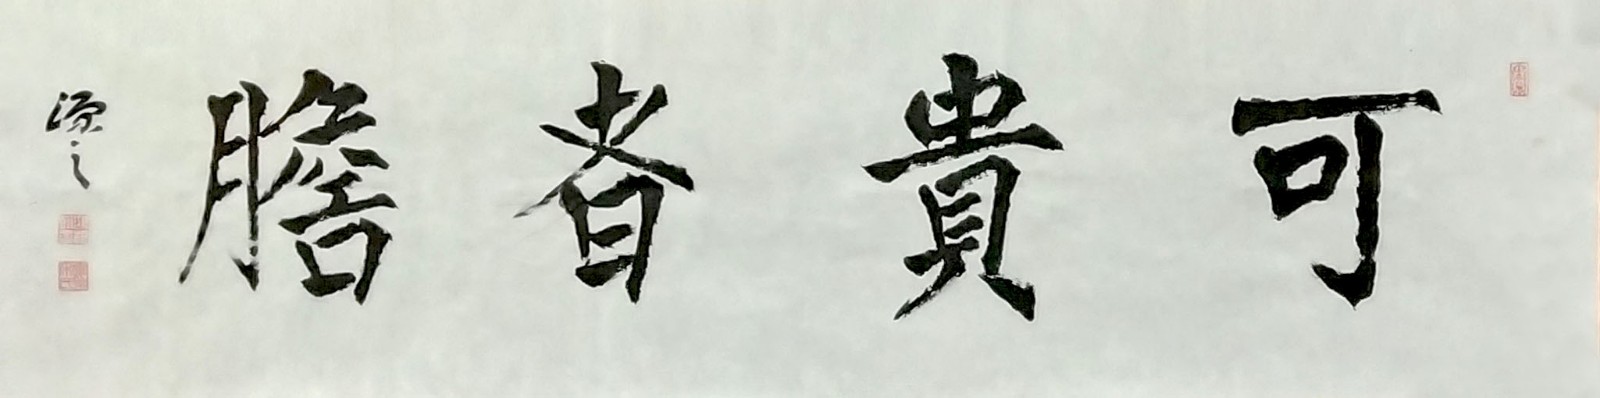 可貴者膽
源之